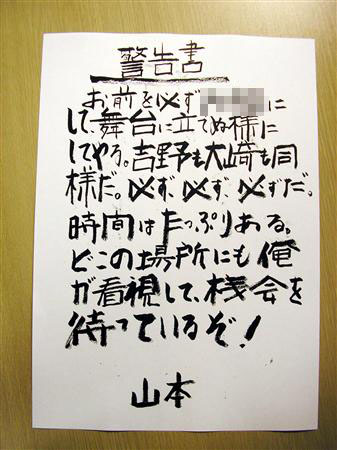 警告書
お前を必ず に
して、舞台に立てぬ様に
してやる。吉野も大崎も同
様だ。必ず、必ず、必ずだ。
時間はたっぷりある。
どこの場所にも俺
が看視して、機会を
待っているぞ!
山本